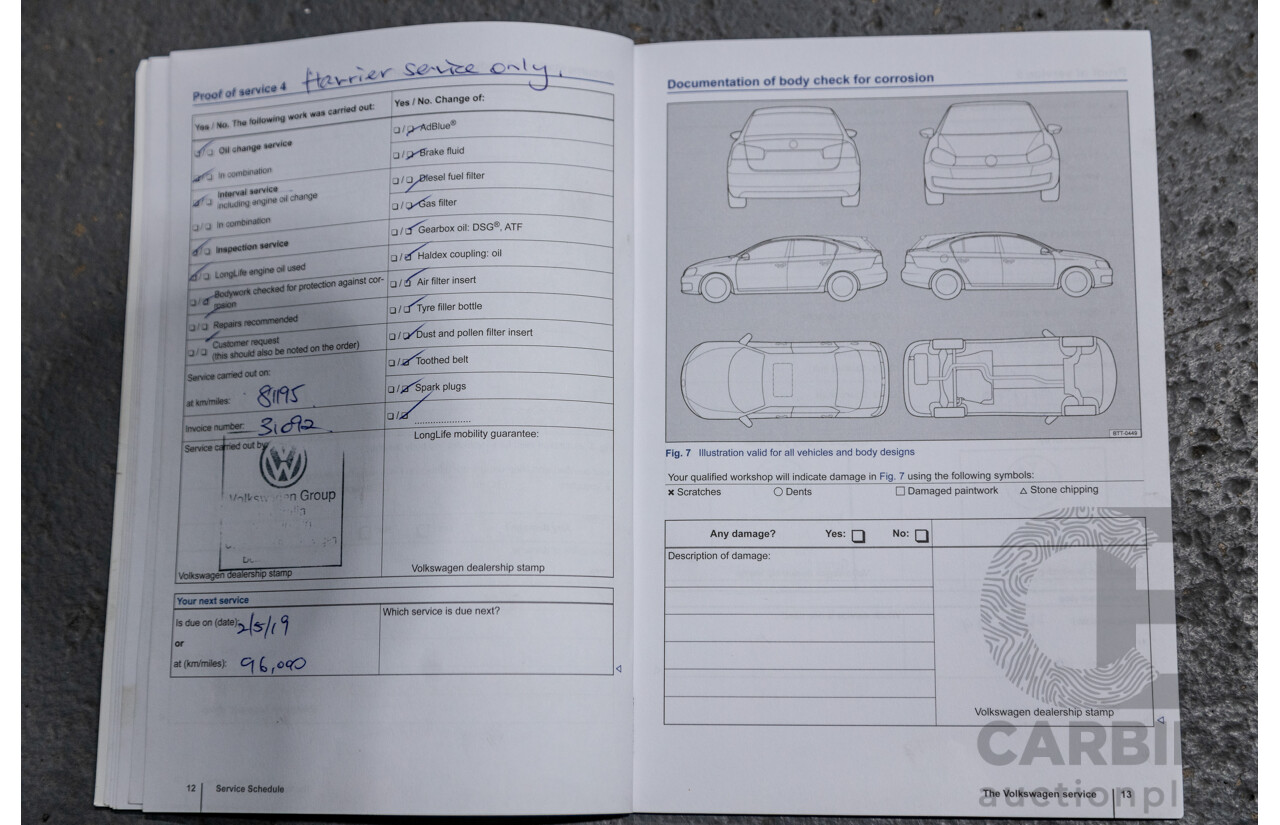 Proof of service 4 Harrier service only.
Yes / No. The following work was carried out:
Yes / No. Change of:
Oil change service
In combination
Interval service
including engine oil change
In combination
Inspection service
LongLife engine oil used
Bodywork checked for protection against cor-
rosion
Repairs recommended
Customer request
(this should also be noted on the order)
Service carried out on:
at km/miles: 81195
Invoice number: 31092
Service carried out by:
Volkswagen Group
Volkswagen dealership stamp
AdBlue®
Brake fluid
Diesel fuel filter
Gas filter
Gearbox oil: DSG®, ATF
Haldex coupling: oil
Air filter insert
Tyre filler bottle
Dust and pollen filter insert
Toothed belt
Spark plugs
LongLife mobility guarantee:
Volkswagen dealership stamp
Your next service
Is due on (date): 2/5/19
or
at (km/miles): 96,000
Which service is due next?
12 Service Schedule
Documentation of body check for corrosion
BTT-0449
Fig. 7 Illustration valid for all vehicles and body designs
Your qualified workshop will indicate damage in Fig. 7 using the following symbols:
× Scratches ○ Dents □ Damaged paintwork △ Stone chipping
Any damage? Yes: ❑ No: ❑
Description of damage:
Volkswagen dealership stamp
The Volkswagen service 13
CARBI
auctionpl